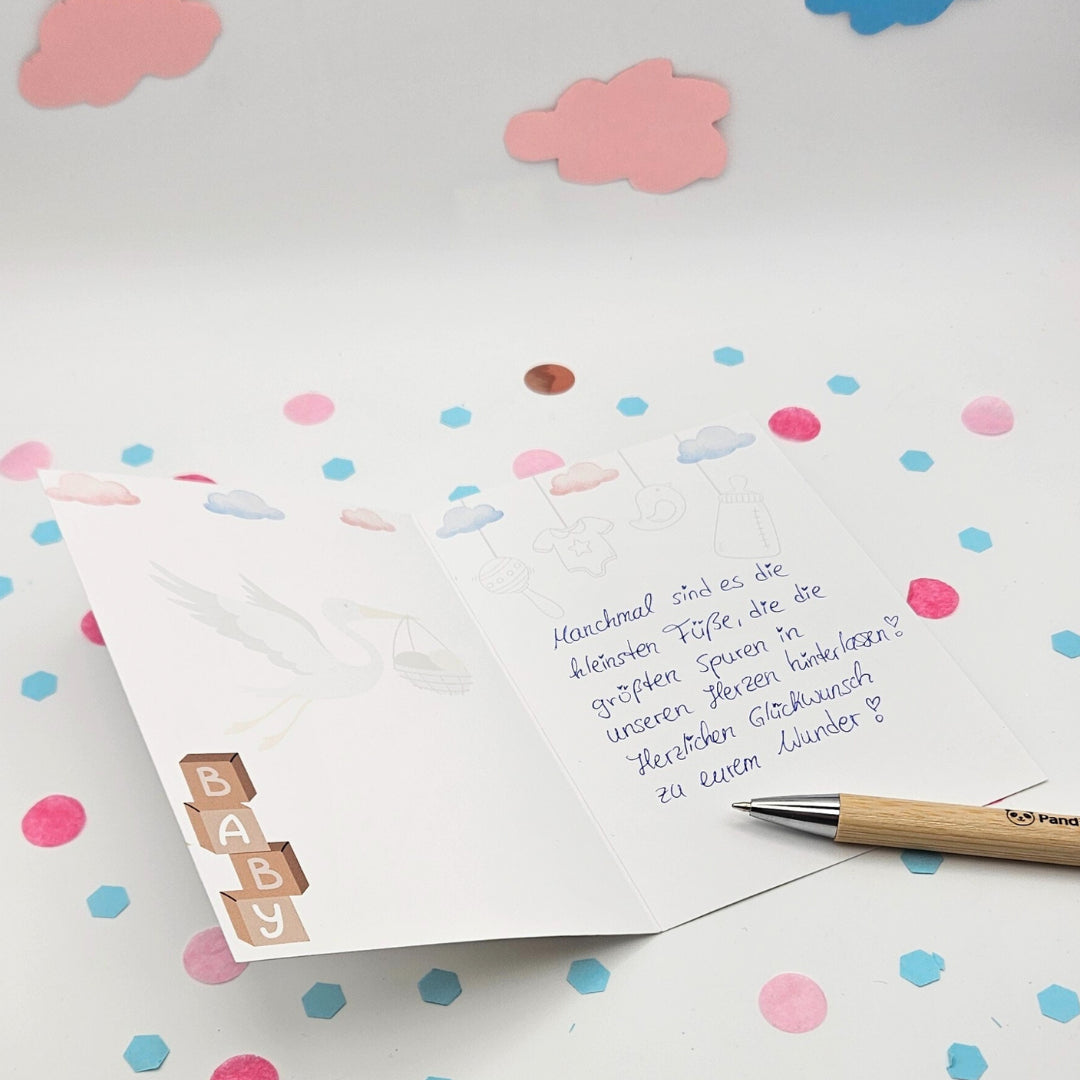 B
A
B
Y
Manchmal sind es die
kleinsten Füße, die die
größten Spuren in
unseren Herzen hinterlassen!
Herzlichen Glückwunsch
zu eurem Wunder!
Pand